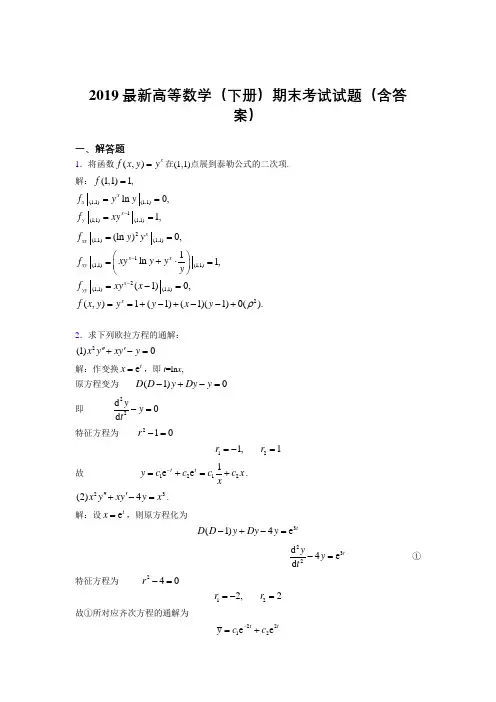 2019最新高等数学(下册)期末考试试题(含答
案)
一、解答题
1.将函数 f(x, y) = y^x 在(1,1)点展到泰勒公式的二次项.
解: f(1,1) = 1,
f_x|_(1,1) = y^x ln y|_(1,1) = 0,
f_y|_(1,1) = xy^{x-1}|_(1,1) = 1,
f_xx|_(1,1) = (ln y)^2 y^x|_(1,1) = 0,
f_xy|_(1,1) = (xy^{x-1} ln y + y^x · 1/y)|_(1,1) = 1,
f_yy|_(1,1) = xy^{y-2}(x-1)|_(1,1) = 0,
f(x, y) = y^x = 1 + (y-1) + (x-1)(y-1) + 0(ρ^2).
2.求下列欧拉方程的通解:
(1) x^2 y″ + xy′ - y = 0
解:作变换 x = e^t,即 t=ln x,
原方程变为 D(D-1)y + Dy - y = 0
即 d^2y/dt^2 - y = 0
特征方程为 r^2 - 1 = 0
r_1 = -1, r_2 = 1
故 y = c_1 e^{-t} + c_2 e^t = c_1 1/x + c_2 x.
(2) x^2 y″ + xy′ - 4y = x^3.
解:设 x = e^t,则原方程化为
D(D-1)y + Dy - 4y = e^{3t}
d^2y/dt^2 - 4y = e^{3t} ①
特征方程为 r^2 - 4 = 0
r_1 = -2, r_2 = 2
故①所对应齐次方程的通解为
y̅ = c_1 e^{-2t} + c_2 e^{2t}